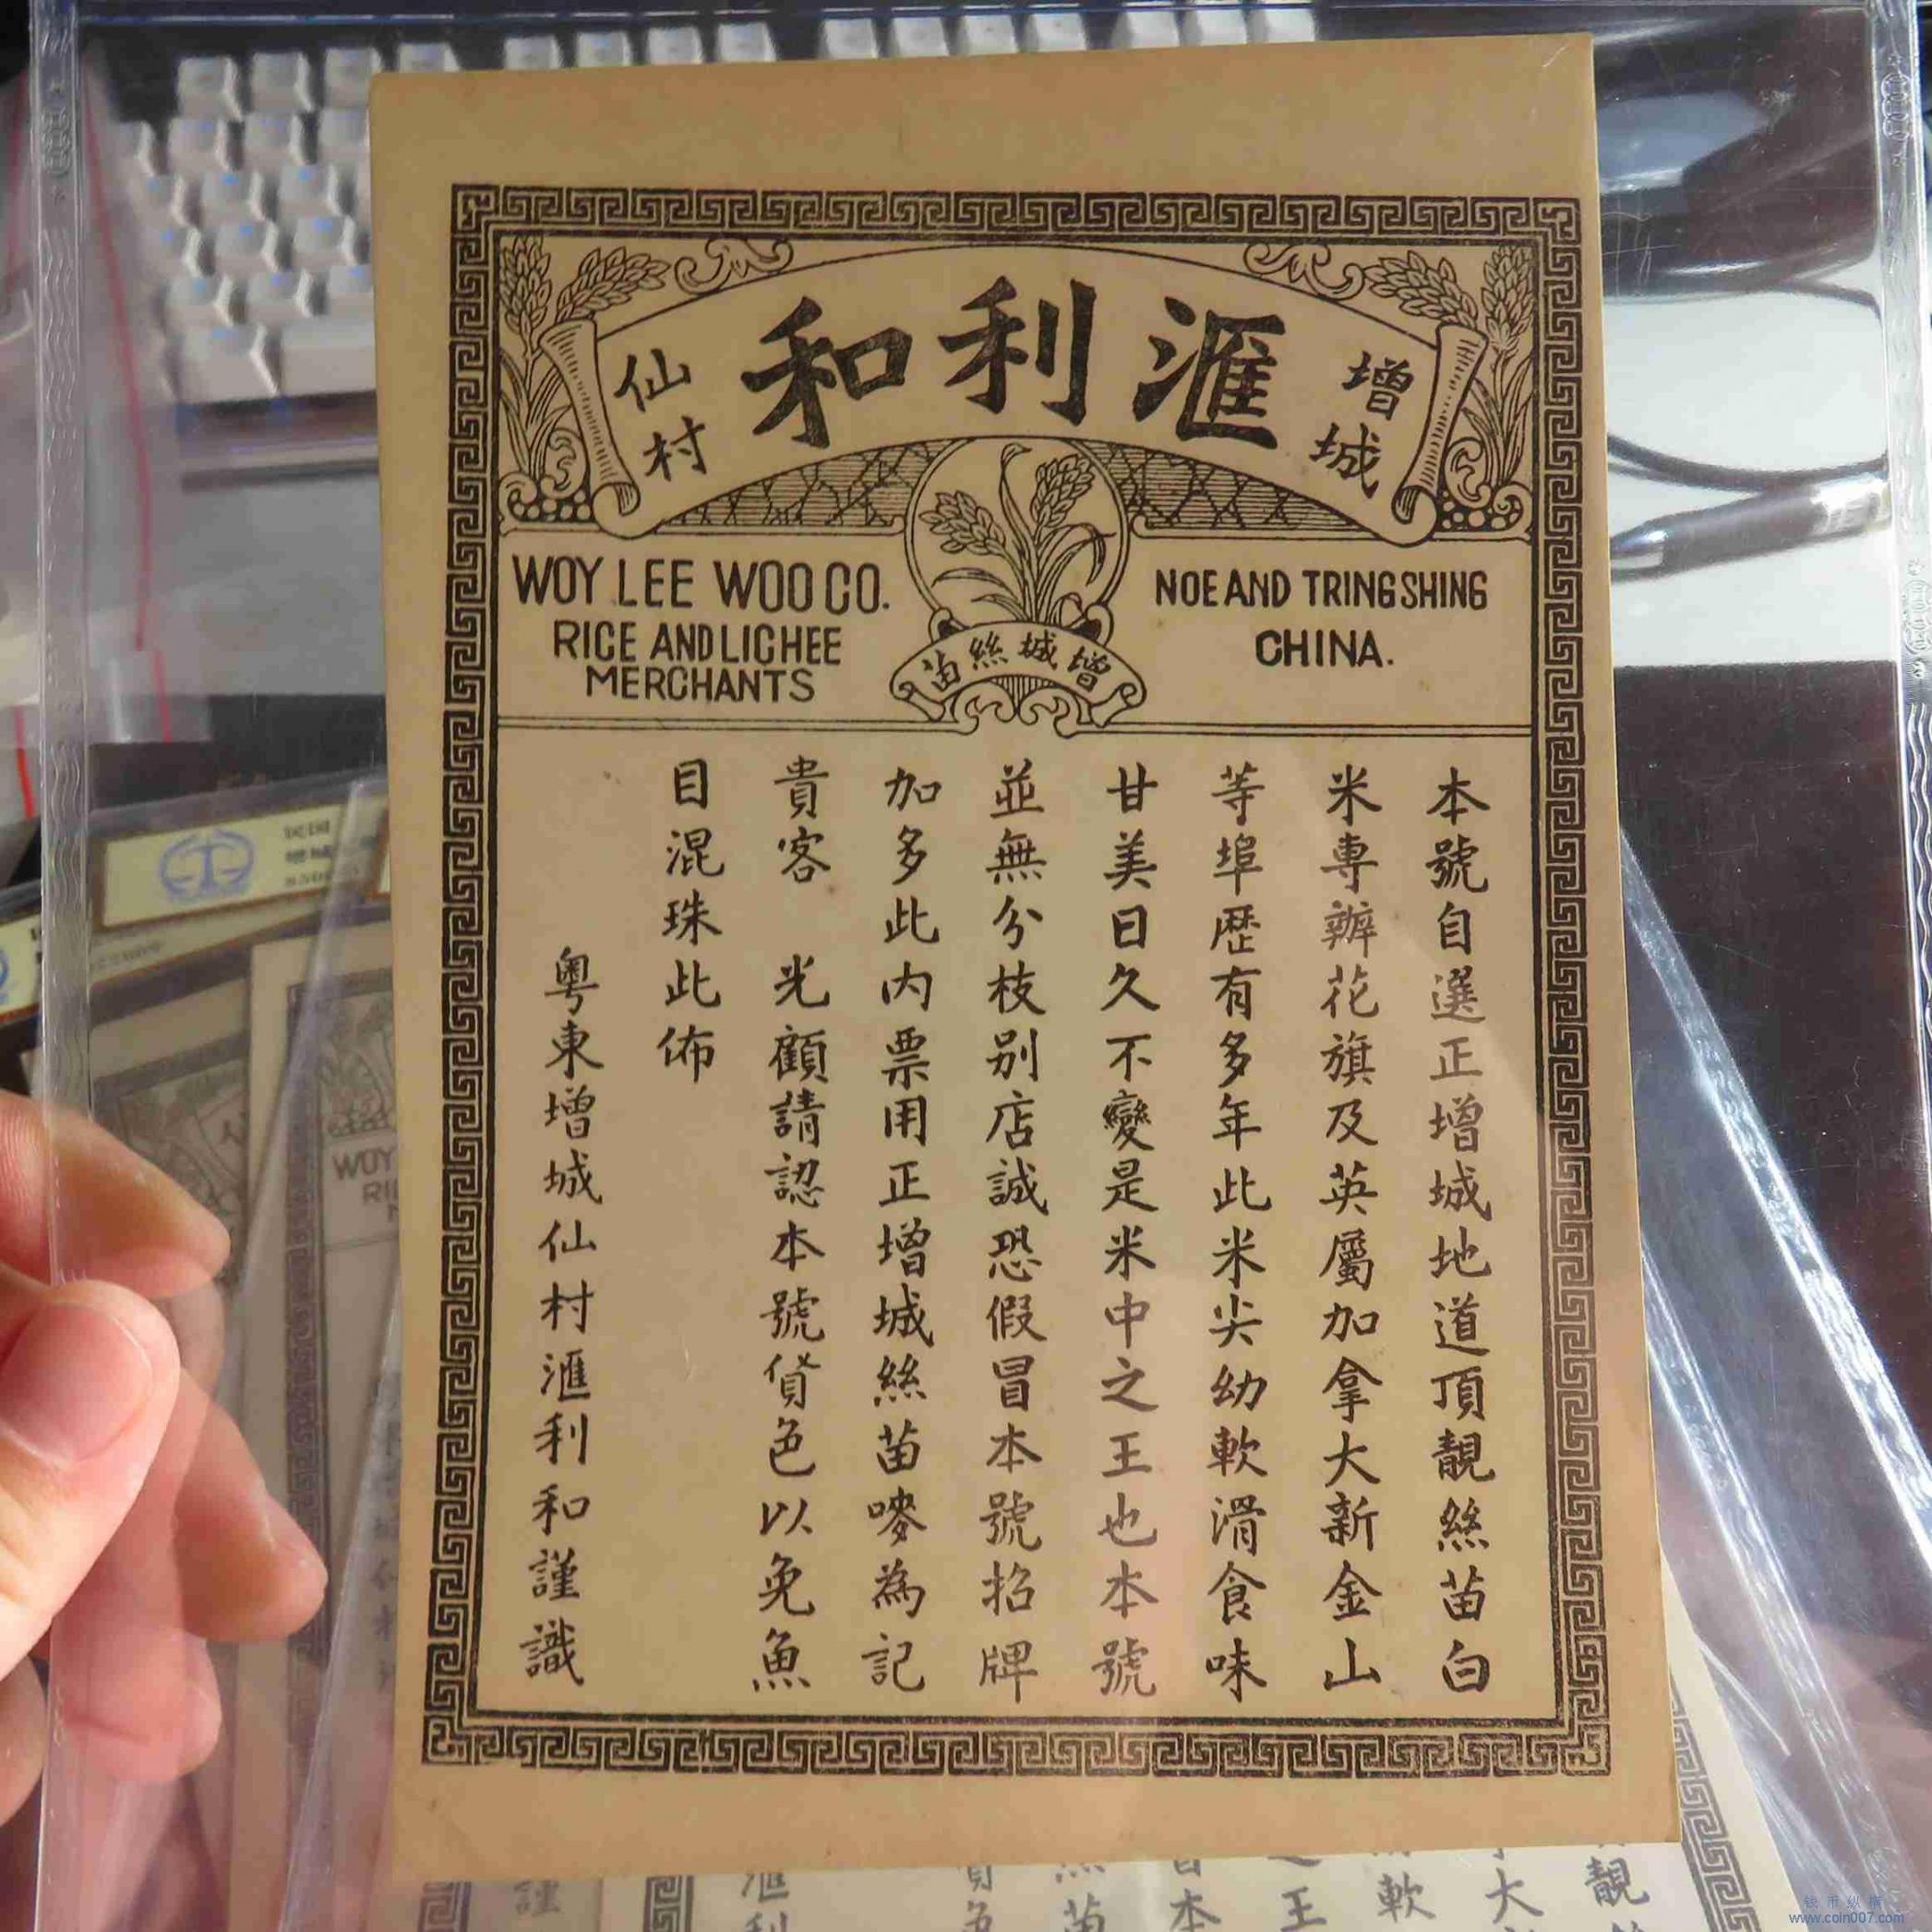 滙利和
增城
仙村
WOY LEE WOO CO.
RICE AND LICHEE
MERCHANTS
NOE AND TRINGSHING
CHINA.
增城絲苗
本號自選正增城地道頂靚絲苗白
米專辦花旗及英屬加拿大新金山
等埠歷有多年此米尖幼軟滑食味
甘美日久不變是米中之王也本號
並無分枝別店誠恐假冒本號招牌
加多此內票用正增城絲苗嘜為記
貴客 光顧請認本號貨色以免魚
目混珠此佈
粵東增城仙村滙利和謹識
WOY
謹
滙利
靚
軟
大
王
www.coin007.com